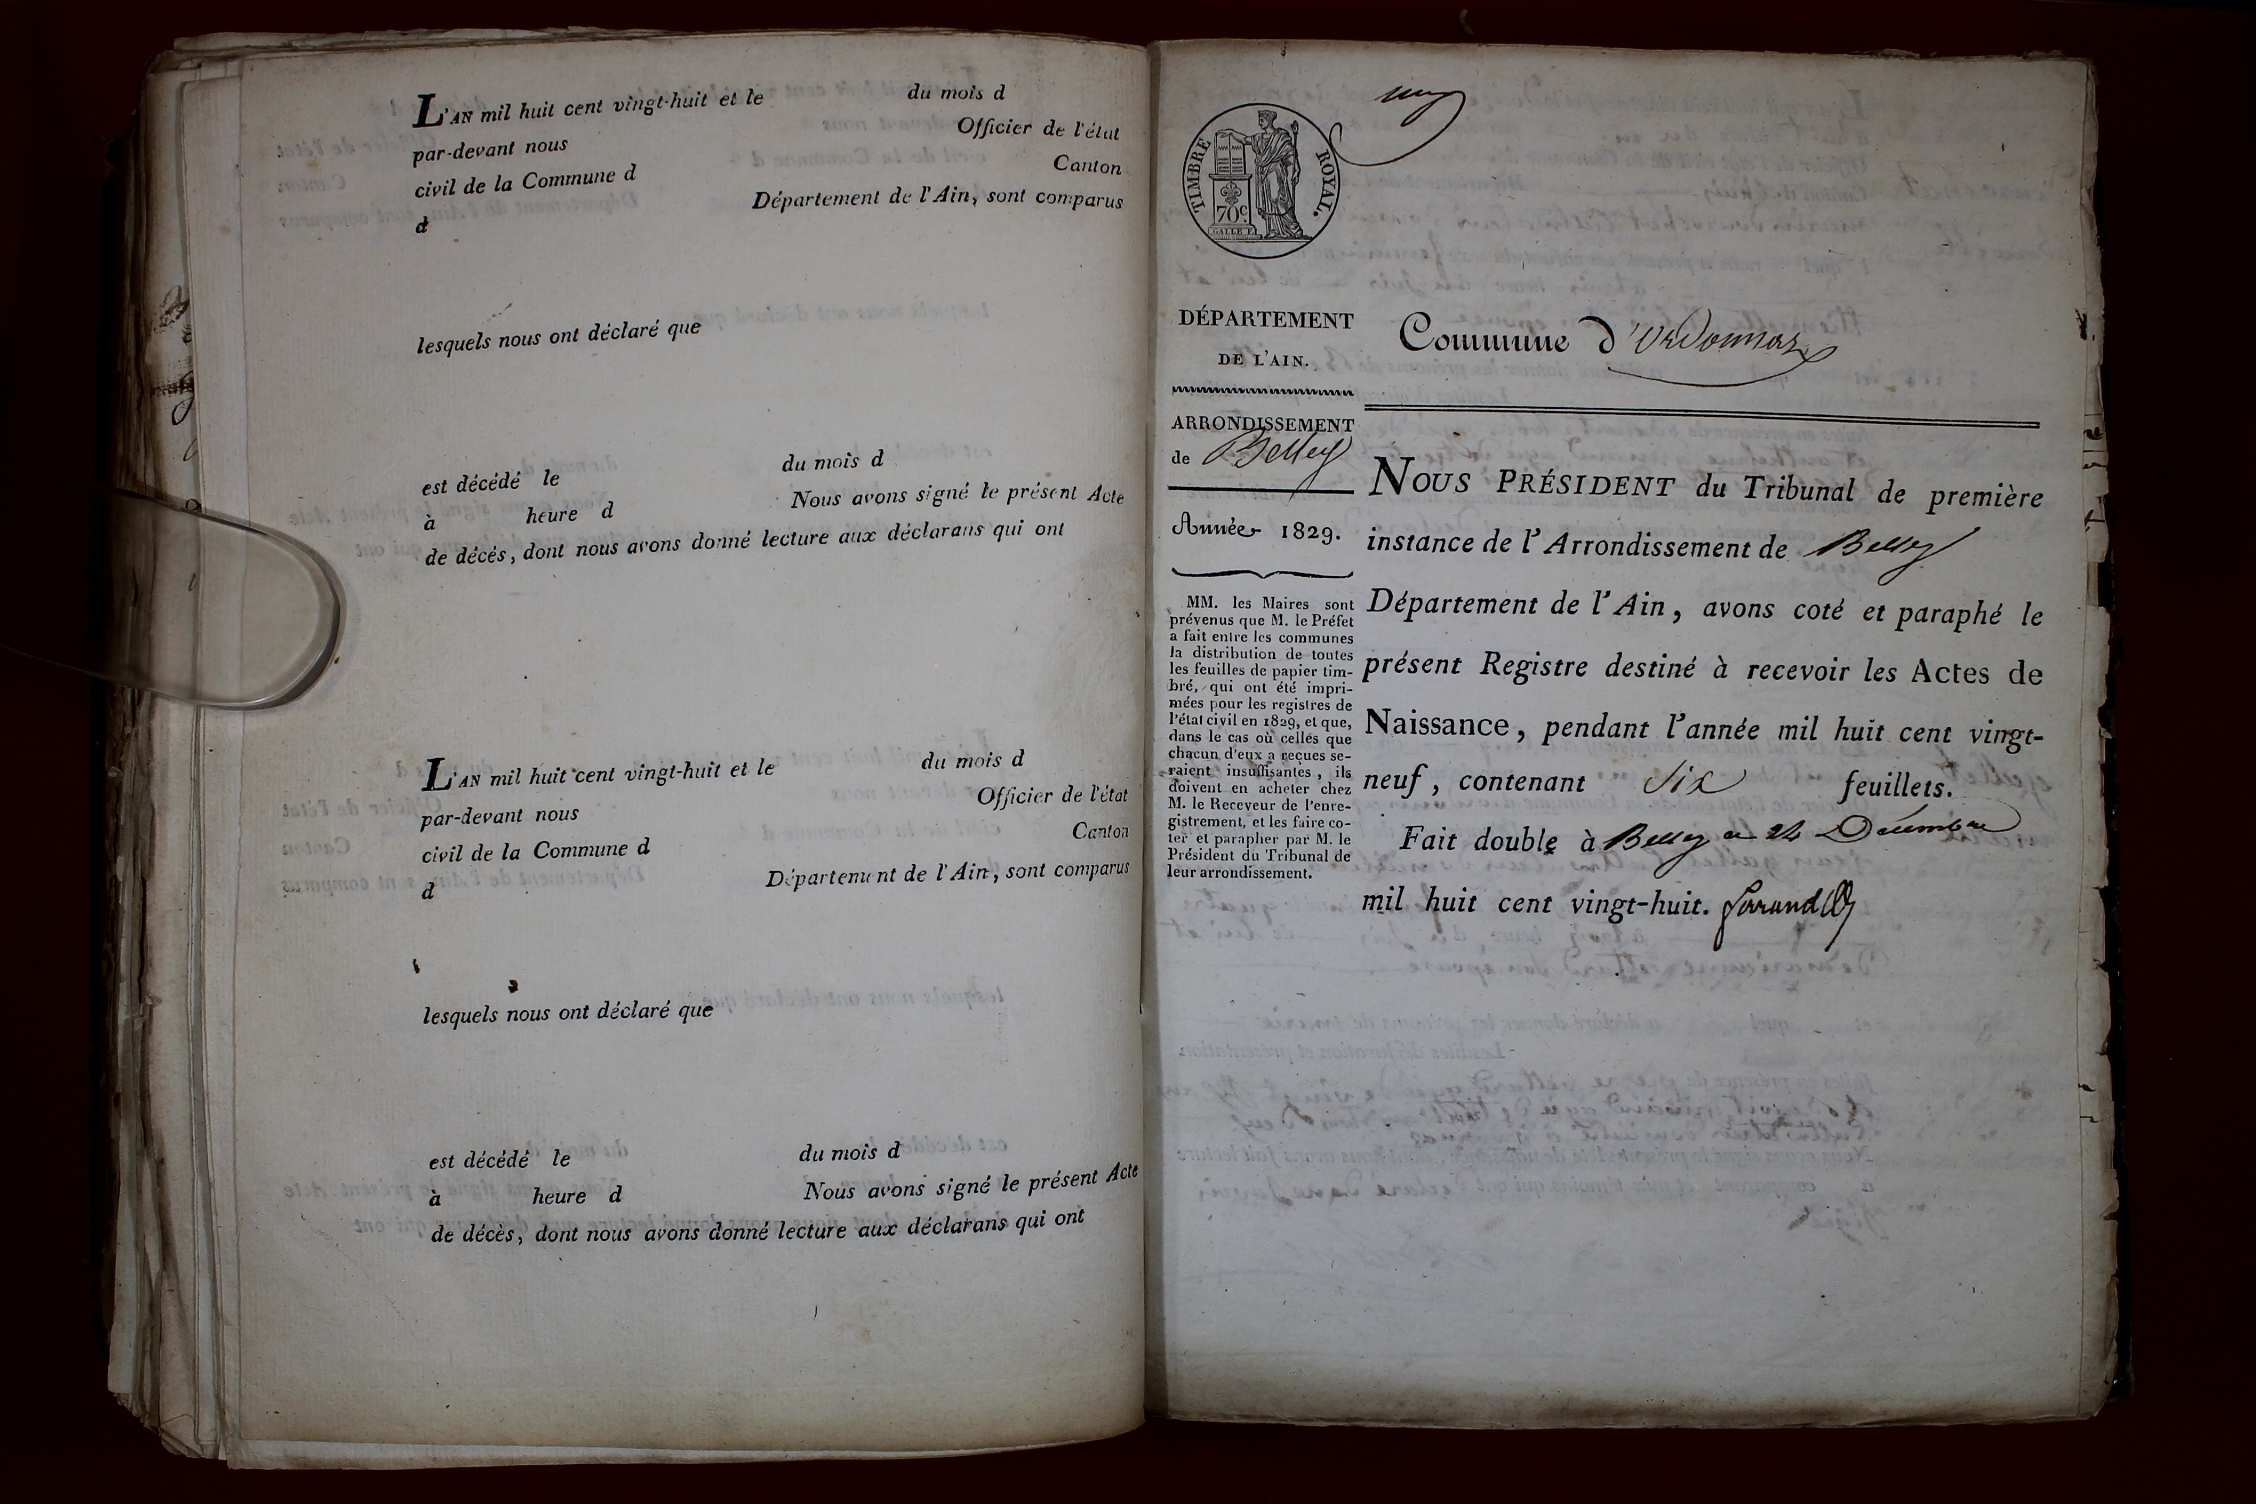 L'AN mil huit cent vingt-huit et le du mois d
par-devant nous Officier de l'état
civil de la Commune d Canton
d Département de l'Ain, sont comparus
lesquels nous ont déclaré que
est décédé le du mois d
à heure d Nous avons signé le présent Acte
de décès, dont nous avons donné lecture aux déclarans qui ont
L'AN mil huit cent vingt-huit et le du mois d
par-devant nous Officier de l'état
civil de la Commune d Canton
d Département de l'Ain, sont comparus
lesquels nous ont déclaré que
est décédé le du mois d
à heure d Nous avons signé le présent Acte
de décès, dont nous avons donné lecture aux déclarans qui ont
TIMBRE ROYAL.
70c
GALLE F.
DÉPARTEMENT
DE L'AIN.
ARRONDISSEMENT
de Belley
Année 1829.
MM. les Maires sont
prévenus que M. le Préfet
a fait entre les communes
la distribution de toutes
les feuilles de papier tim-
bré, qui ont été impri-
mées pour les registres de
l'état civil en 1829, et que,
dans le cas où celles que
chacun d'eux a reçues se-
raient insuffisantes, ils
doivent en acheter chez
M. le Receveur de l'enre-
gistrement, et les faire co-
ter et parapher par M. le
Président du Tribunal de
leur arrondissement.
Commune d'Ordonnaz
NOUS PRÉSIDENT du Tribunal de première
instance de l'Arrondissement de Belley
Département de l'Ain, avons coté et paraphé le
présent Registre destiné à recevoir les Actes de
Naissance, pendant l'année mil huit cent vingt-
neuf, contenant Six feuillets.
Fait double à Belley ce 24 Décembre
mil huit cent vingt-huit.